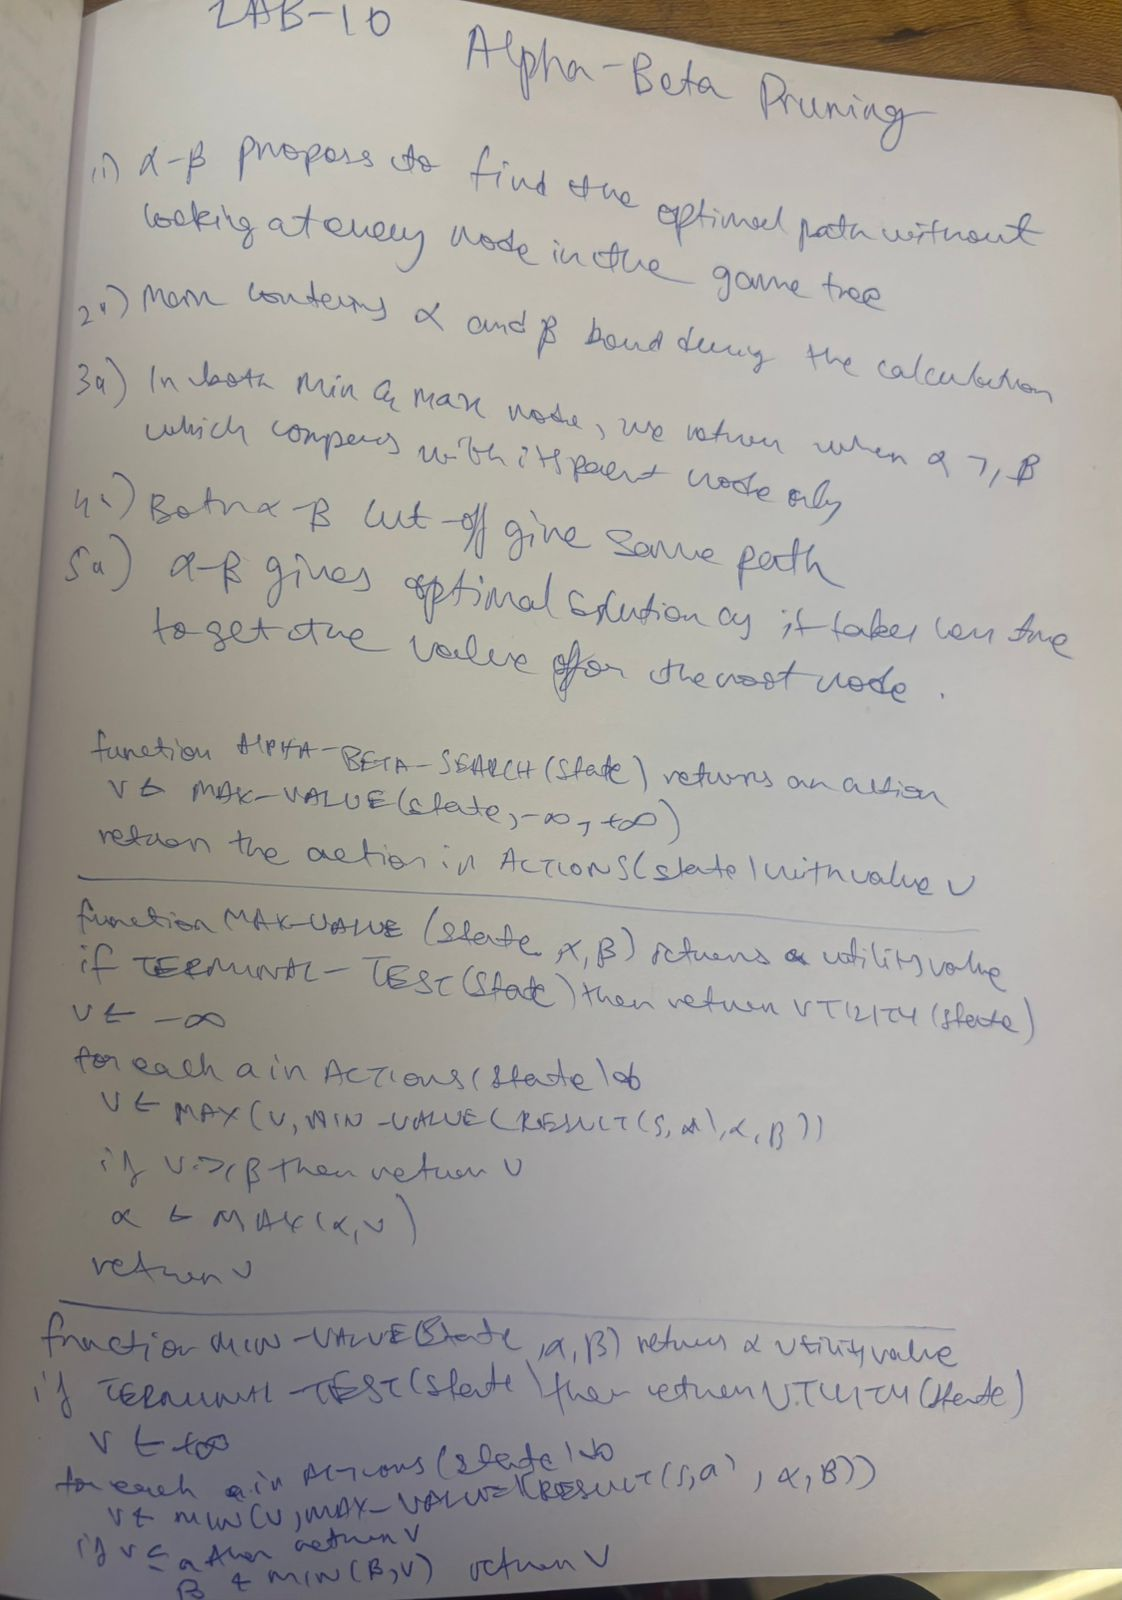 LAB-10
Alpha-Beta Pruning
1) α-β proposes to find the optimal path without
looking at every node in the game tree
2.) Mem contains α and β bond during the calculation
3a) In both Min & max node, we return when α >, β
which compers with its parent node only
4.) Both α-β cut-off give same path
5a) α-β gives optimal solution as it takes less time
to get the value for the root node.
function ALPHA-BETA-SEARCH(state) returns an action
v ← MAX-VALUE(state, -∞, +∞)
return the action in ACTIONS(state) with value v
function MAX-VALUE (state, α, β) returns a utility value
if TERMINAL-TEST(state) then return UTILITY (state)
v ← -∞
for each a in ACTIONS(state) do
v ← MAX(v, MIN-VALUE(RESULT(s,a), α, β))
if v >, β then return v
α ← MAX(α, v)
return v
function MIN-VALUE(state, α, β) returns a utility value
if TERMINAL-TEST(state) then return UTILITY(state)
v ← +∞
for each a in ACTIONS(state) do
v ← MIN(v, MAX-VALUE(RESULT(s,a), α, β))
if v ≤ α then return v
β ← MIN(β, v) return v